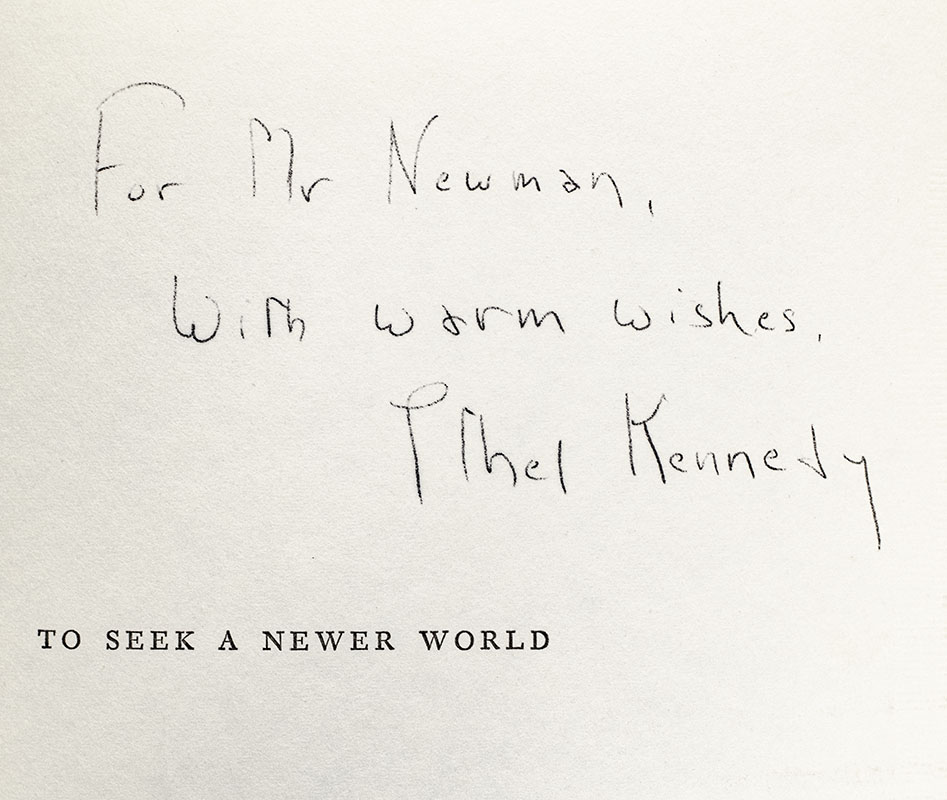 For Mr Newman,
With warm wishes,
Ethel Kennedy
TO SEEK A NEWER WORLD